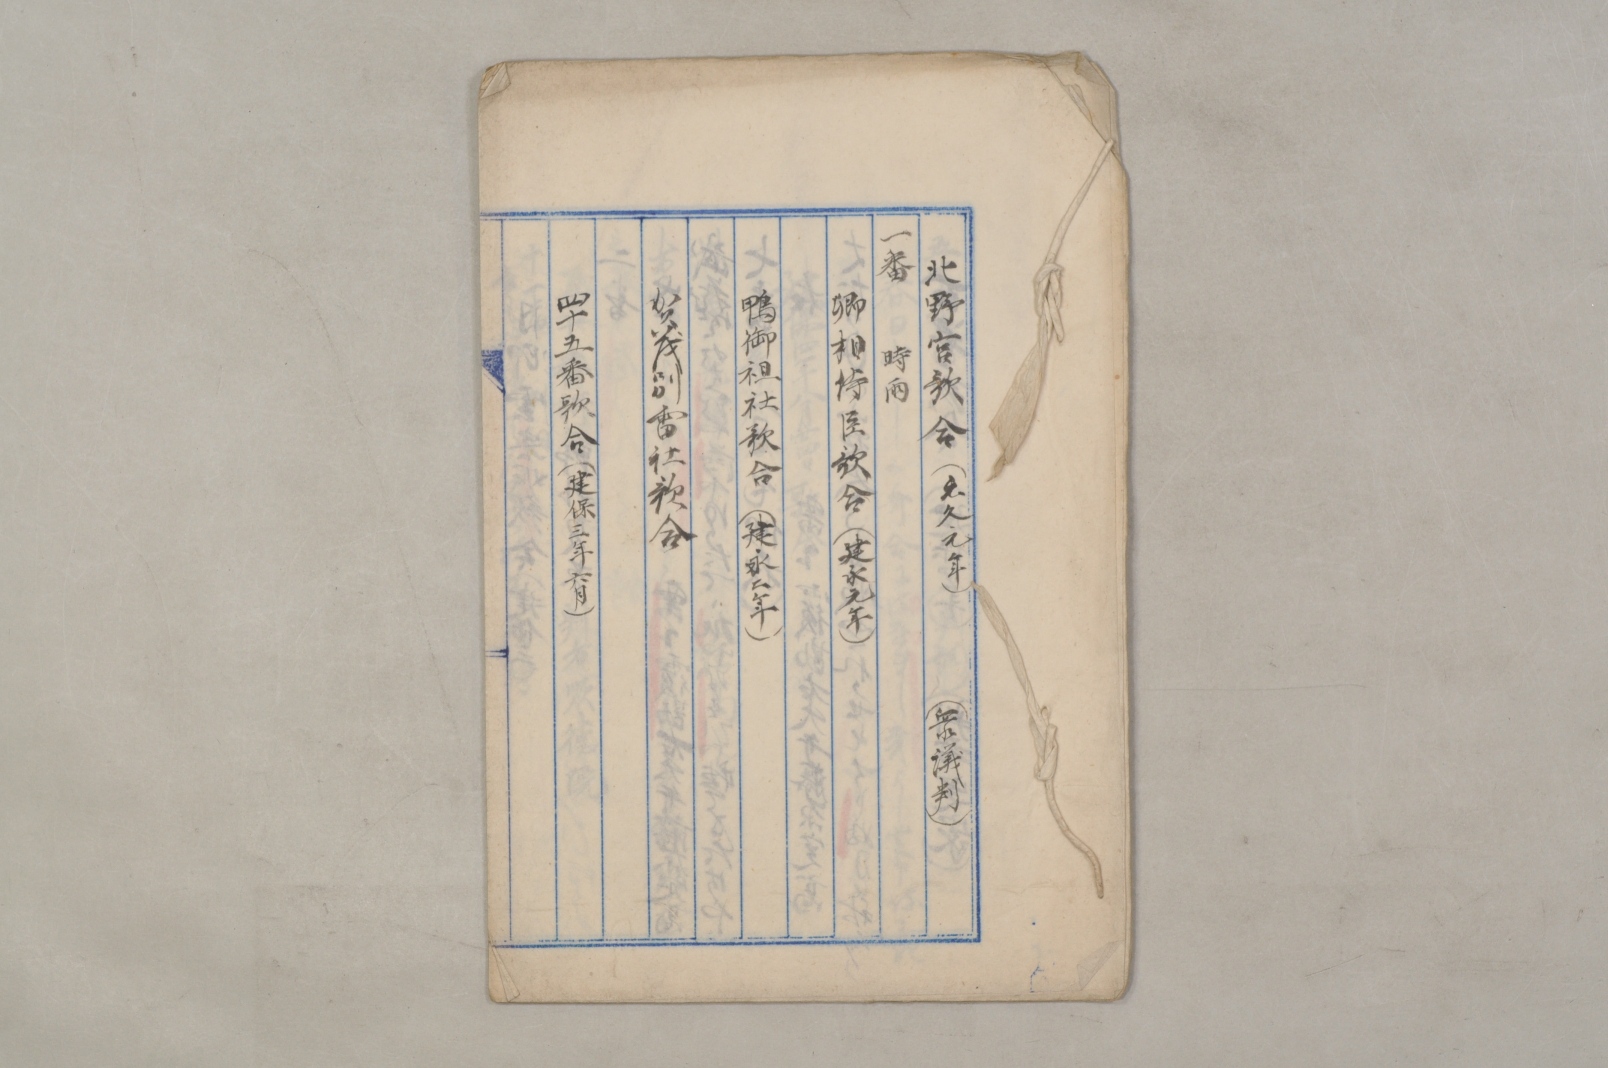 北野宮歌合(元久元年)(衆議判)
一番 時雨
卿相侍臣歌合(建永元年)
鴨御祖社歌合(建永二年)
賀茂別雷社歌合
四十五番歌合(建保三年六月)